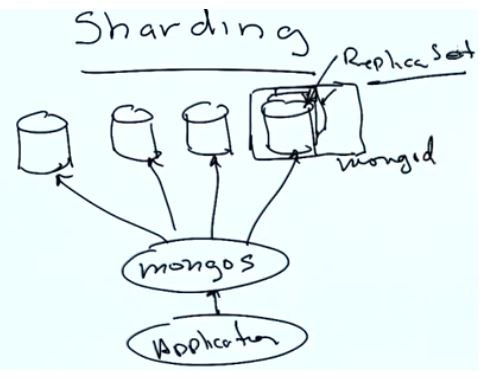 Sharding
Replica Set
mongod
mongos
Application